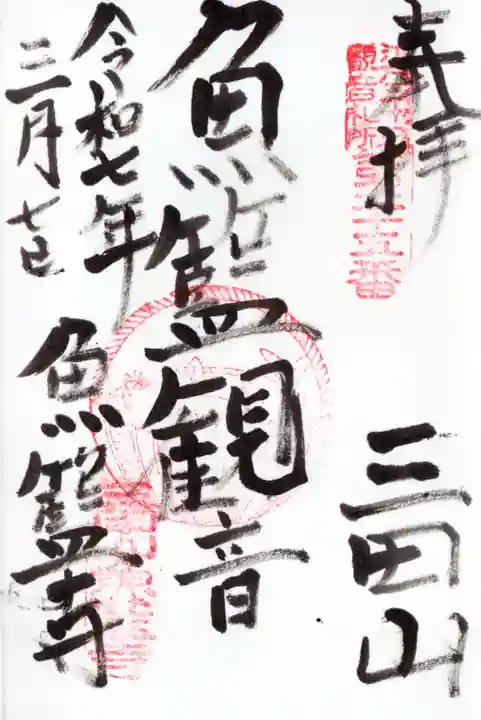 奉拝
三田山
魚籃観音
令和七年
三月七日
魚籃寺
観音札所第二十五番